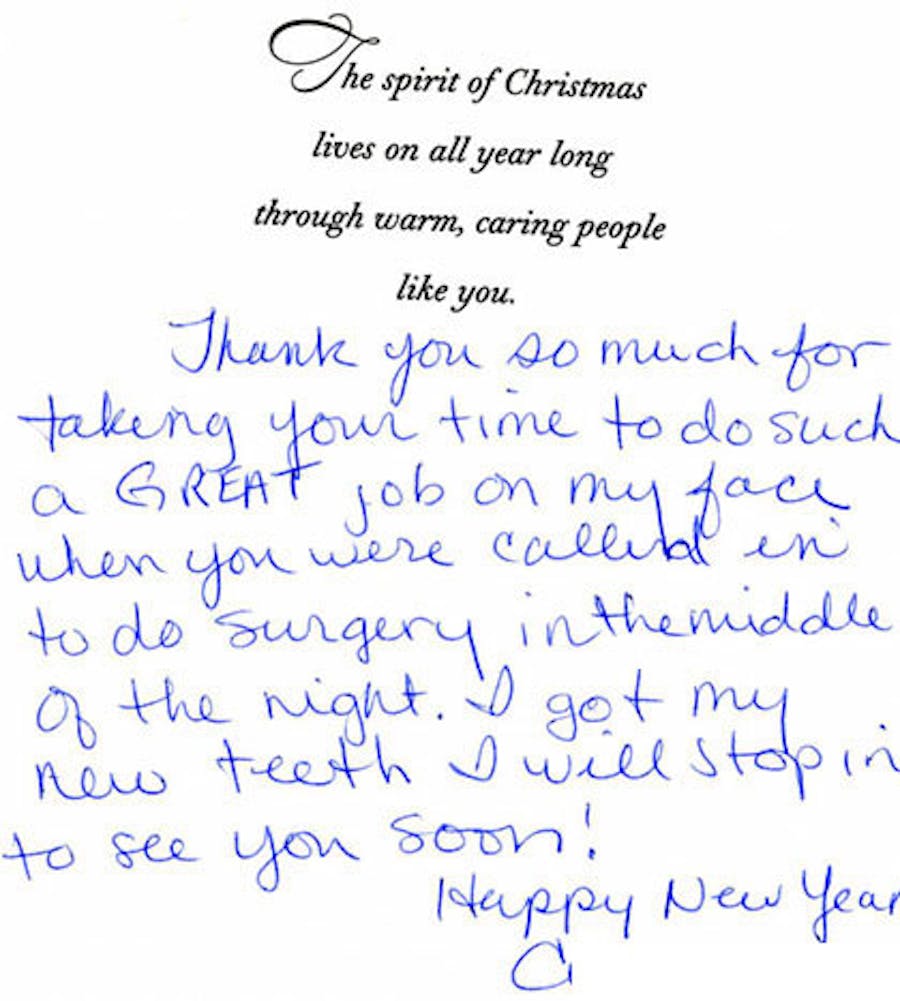 The spirit of Christmas
lives on all year long
through warm, caring people
like you.
Thank you so much for
taking your time to do such
a GREAT job on my face
when you were called in
to do surgery in the middle
of the night. I got my
new teeth I will stop in
to see you soon!
Happy New Year
C